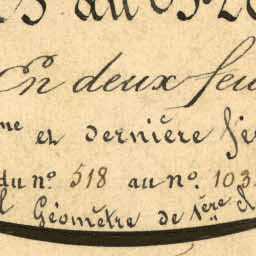 En deux feu
me et dernière fe
du nº. 518 au nº. 103
Géomètre de 1ère cl